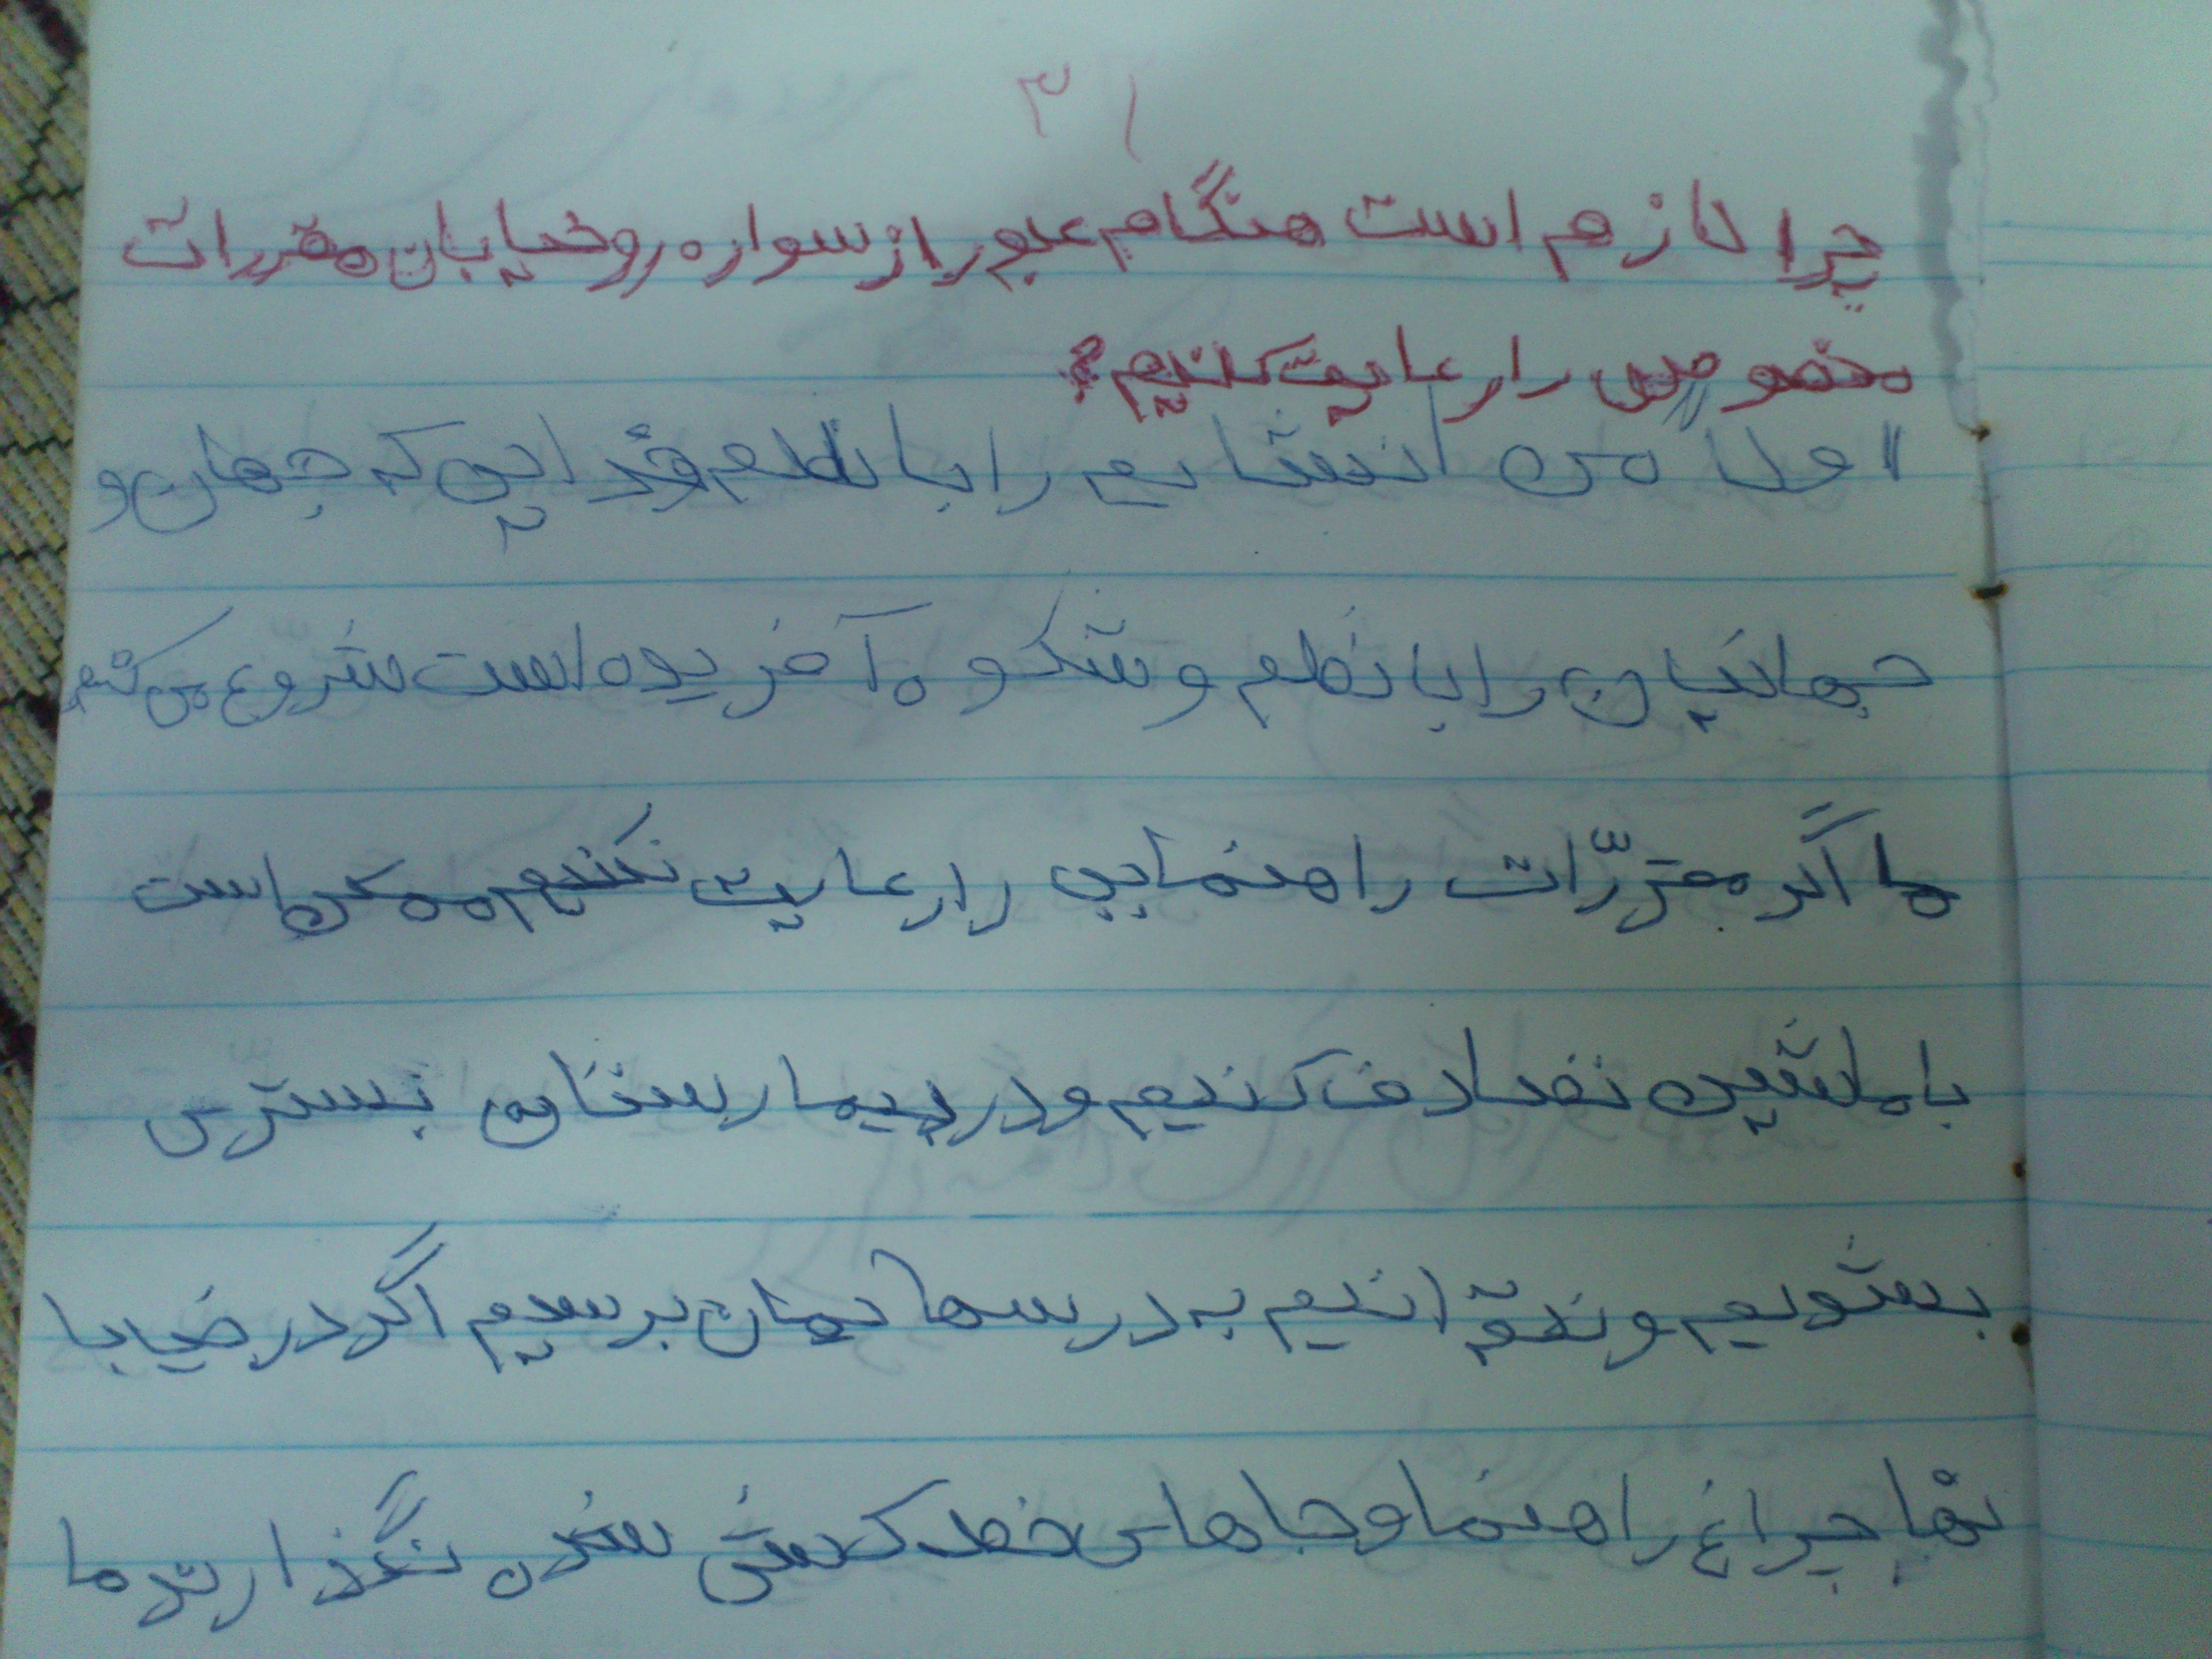 چرا لازم است هنگام عبور از سواره رو خیابان مقررات
مخصوص را رعایت کنیم؟
اولاً من انشایم را با نظم خدایی که جهان و
جهانیان را با نظم و شکوه آفریده است شروع می کنم
ما اگر مقرّرات راهنمایی را رعایت نکنیم ممکن است
با ماشین تصادف کنیم و در بیمارستان بستری
بشویم و نتوانیم به درسهایمان برسیم اگر در خیابا
نها چراغ راهنما و جاهای خط کشی شدن نگذارند ما